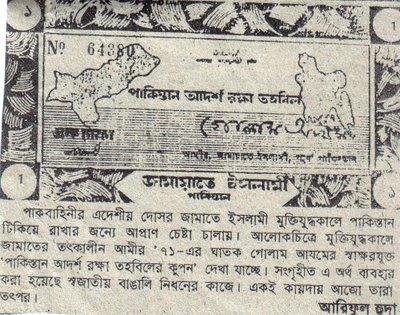 ১
1
Nº 64380
পাকিস্তান আদর্শ রক্ষা তহবিল
এক টাকা
গোলাম আযম
আমীর, জামায়াতে ইসলামী, পূর্ব পাকিস্তান
1
জামায়াতে ইসলামী
পাকিস্তান
১
পাকবাহিনীর এদেশীয় দোসর জামাতে ইসলামী মুক্তিযুদ্ধকালে পাকিস্তান
টিকিয়ে রাখার জন্যে আপ্রাণ চেষ্টা চালায়। আলোকচিত্রে মুক্তিযুদ্ধকালে
জামাতের তৎকালীন আমীর '৭১-এর ঘাতক গোলাম আযমের স্বাক্ষরযুক্ত
'পাকিস্তান আদর্শ রক্ষা তহবিলের কুপন' দেখা যাচ্ছে। সংগৃহীত এ অর্থ ব্যবহার
করা হয়েছে স্বজাতীয় বাঙালি নিধনের কাজে। একই কায়দায় আজো তারা
তৎপর।
আরিফুল হুদা